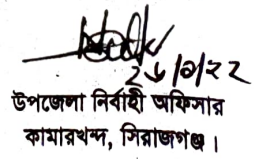 ২৮/৩/২২
উপজেলা নির্বাহী অফিসার
কামারখন্দ, সিরাজগঞ্জ।